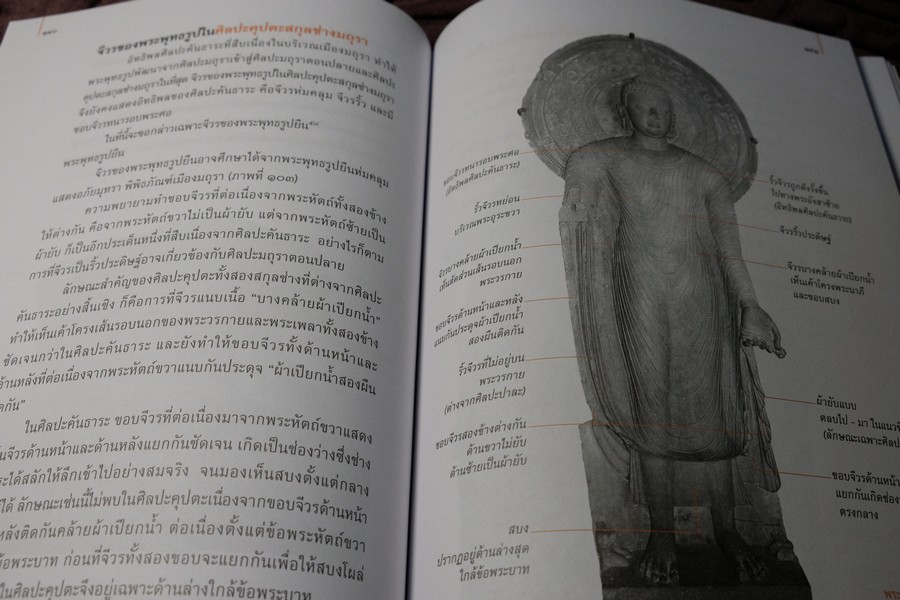 ๑๙๐
จีวรของพระพุทธรูปในศิลปะคุปตะสกุลช่างมถุรา
อิทธิพลศิลปะคันธาระที่สืบเนื่องในบริเวณเมืองมถุรา ทำให้
พระพุทธรูปพัฒนาจากศิลปะมถุราเข้าสู่ศิลปะมถุราตอนปลายและศิลปะ
คุปตะสกุลช่างมถุราในที่สุด จีวรของพระพุทธรูปในศิลปะคุปตะสกุลช่างมถุรา
จึงยังคงแสดงอิทธิพลของศิลปะคันธาระ คือจีวรห่มคลุม จีวรริ้ว และมี
ขอบจีวรหนารอบพระศอ
ในที่นี้จะขอกล่าวเฉพาะจีวรของพระพุทธรูปยืน
พระพุทธรูปยืน
จีวรของพระพุทธรูปยืนอาจศึกษาได้จากพระพุทธรูปยืนห่มคลุม
แสดงอภัยมุทรา พิพิธภัณฑ์เมืองมถุรา (ภาพที่ ๑๐๓)
ความพยายามทำขอบจีวรที่ต่อเนื่องจากพระหัตถ์ทั้งสองข้าง
ให้ต่างกัน คือจากพระหัตถ์ขวาไม่เป็นผ้ายับ แต่จากพระหัตถ์ซ้ายเป็น
ผ้ายับ ก็เป็นอีกประเด็นหนึ่งที่สืบเนื่องจากศิลปะคันธาระ อย่างไรก็ตาม
การที่จีวรเป็นริ้วประดิษฐ์อาจเกี่ยวข้องกับศิลปะมถุราตอนปลาย
ลักษณะสำคัญของศิลปะคุปตะทั้งสองสกุลช่างที่ต่างจากศิลปะ
คันธาระอย่างสิ้นเชิง ก็คือการที่จีวรแนบเนื้อ “บางคล้ายผ้าเปียกน้ำ”
ทำให้เห็นเค้าโครงเส้นรอบนอกของพระวรกายและพระเพลาทั้งสองข้าง
ชัดเจนกว่าในศิลปะคันธาระ และยังทำให้ขอบจีวรทั้งด้านหน้าและ
ด้านหลังที่ต่อเนื่องจากพระหัตถ์ขวาแนบกันประดุจ “ผ้าเปียกน้ำสองผืน
ติดกัน”
ในศิลปะคันธาระ ขอบจีวรที่ต่อเนื่องมาจากพระหัตถ์ขวาแสดง
จีวรด้านหน้าและด้านหลังแยกกันชัดเจน เกิดเป็นช่องว่างซึ่งช่าง
ได้สลักให้ลึกเข้าไปอย่างสมจริง จนมองเห็นสบงตั้งแต่กลาง
ได้ ลักษณะเช่นนี้ไม่พบในศิลปะคุปตะเนื่องจากขอบจีวรด้านหน้า
หลังติดกันคล้ายผ้าเปียกน้ำ ต่อเนื่องตั้งแต่ข้อพระหัตถ์ขวา
ข้อพระบาท ก่อนที่จีวรทั้งสองขอบจะแยกกันเพื่อให้สบงโผล่
ในศิลปะคุปตะจึงอยู่เฉพาะด้านล่างใกล้ข้อพระบาท
๑๙๑
ขอบจีวรหนารอบพระศอ
(อิทธิพลศิลปะคันธาระ)
ริ้วจีวรหย่อน
บริเวณพระอุระขวา
จีวรบางคล้ายผ้าเปียกน้ำ
เห็นสัดส่วนเส้นรอบนอก
พระวรกาย
ขอบจีวรด้านหน้าและหลัง
แนบกันประดุจผ้าเปียกน้ำ
สองผืนติดกัน
ริ้วจีวรที่ไม่อยู่บน
พระวรกาย
(ต่างจากศิลปะปาละ)
ขอบจีวรสองข้างต่างกัน
ด้านขวาไม่ยับ
ด้านซ้ายเป็นผ้ายับ
สบง
ปรากฏอยู่ด้านล่างสุด
ใกล้ข้อพระบาท
ริ้วจีวรถูกดึงรั้งขึ้น
ไปทางพระอังสาซ้าย
(อิทธิพลศิลปะคันธาระ)
จีวรริ้วประดิษฐ์
จีวรบางคล้ายผ้าเปียกน้ำ
เห็นเค้าโครงพระนาภี
และขอบสบง
ผ้ายับแบบ
ตลบไป - มา ในแนว
(ลักษณะเฉพาะศิลป
ขอบจีวรด้านหน้า
แยกกันเกิดช่อง
ตรงกลาง
พระ